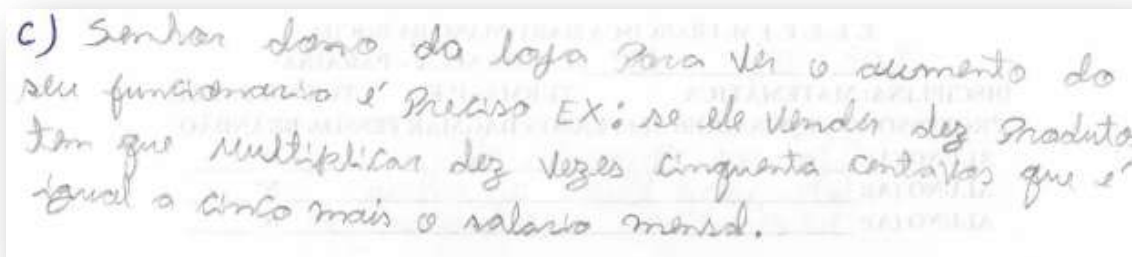 c) Senhor dono da loja Para ver o aumento do
seu funcionario é Preciso EX: se ele vender dez Produto
tem que multiplicar dez vezes cinquenta centavos que é
igual a cinco mais o salario mensal.